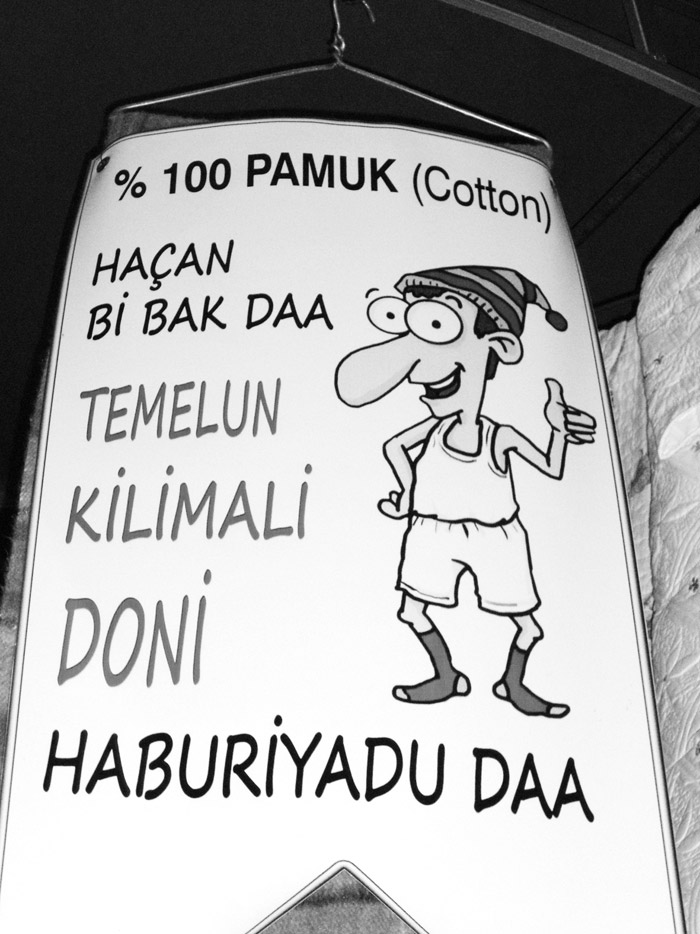 % 100 PAMUK (Cotton)
HAÇAN
Bİ BAK DAA
TEMELUN
KİLİMALİ
DONİ
HABURİYADU DAA